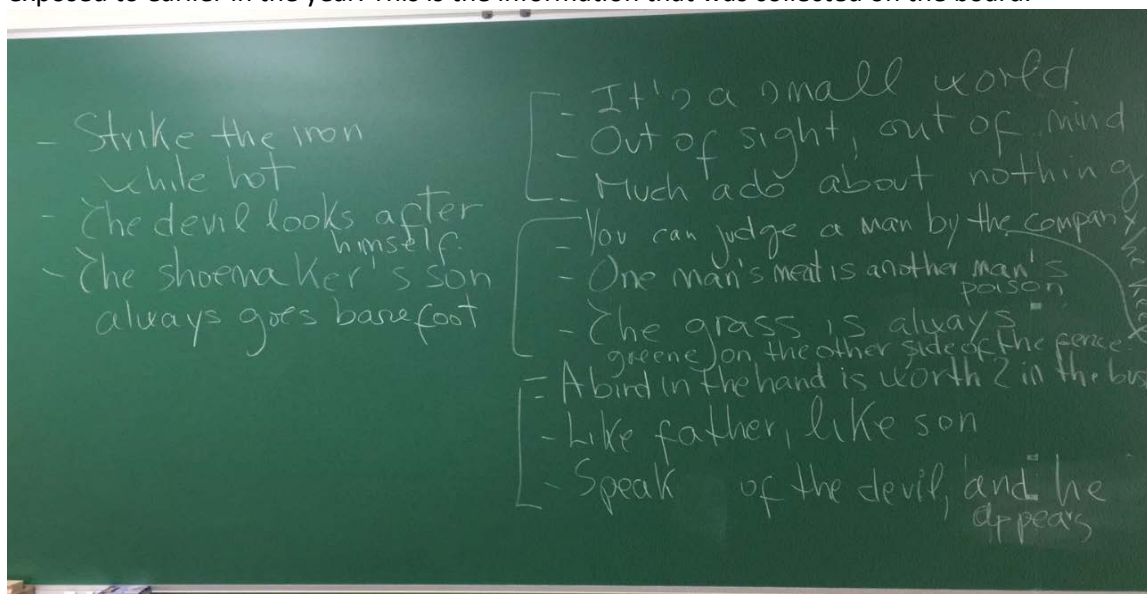 exposed to earlier in the year. This is the information that was collected on the board.
- Strike the iron
while hot
- The devil looks after
himself.
- The shoemaker's son
always goes barefoot
- It's a small world
- Out of sight, out of mind
- Much ado about nothing
- You can judge a man by the company
- One man's meat is another man's
poison
- The grass is always
greener on the other side of the fence
- A bird in the hand is worth 2 in the bus
- Like father, like son
- Speak of the devil, and he
appears